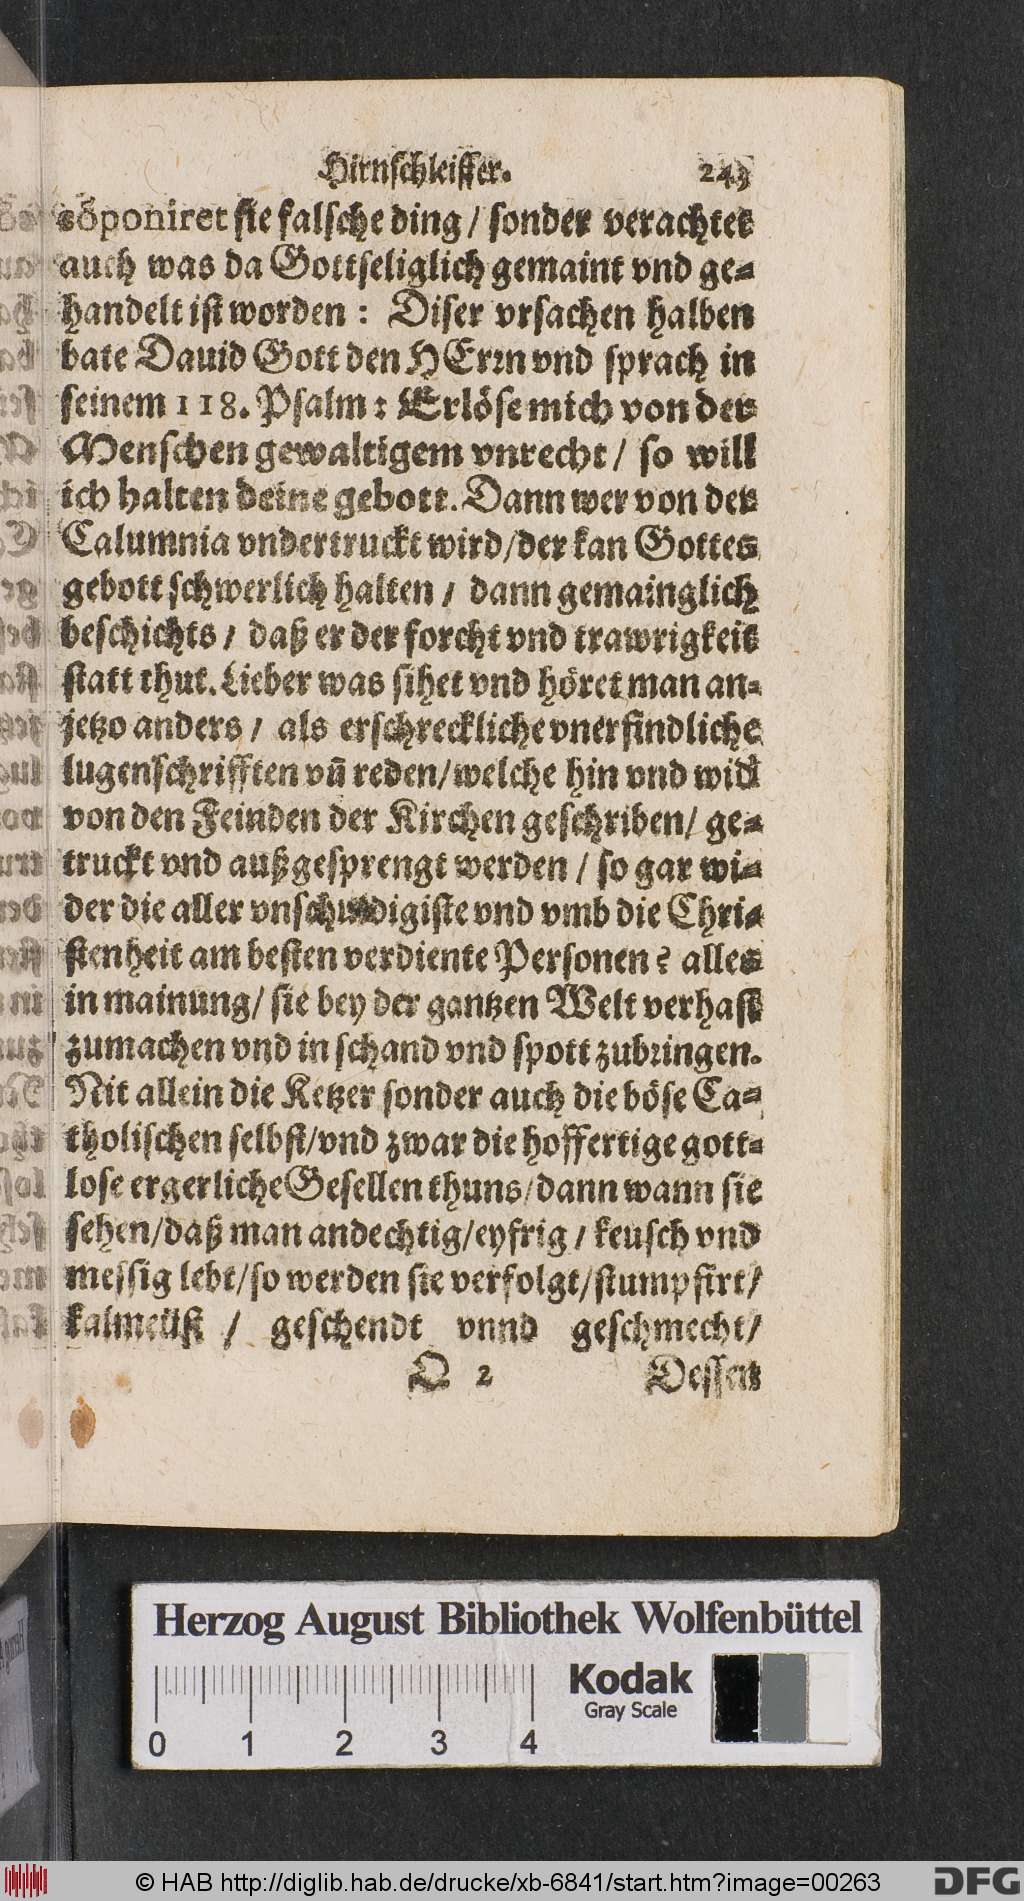 Hirnschleiffer. 243
cõponiret sie falsche ding / sonder verachtet
auch was da Gottseliglich gemaint vnd ge-
handelt ist worden : Diser vrsachen halben
bate Dauid Gott den HErrn vnd sprach in
seinem 118. Psalm : Erlöse mich von der
Menschen gewaltigem vnrecht / so will
ich halten deine gebott. Dann wer von der
Calumnia vndertruckt wird / der kan Gottes
gebott schwerlich halten / dann gemainglich
beschichts / daß er der forcht vnd trawrigkeit
statt thut. Lieber was sihet vnd höret man an-
jetzo anders / als erschreckliche vnerfindliche
lugenschrifften vn̄ reden / welche hin vnd wid
von den Feinden der Kirchen geschriben / ge-
truckt vnd außgesprengt werden / so gar wi-
der die aller vnschuldigiste vnd vmb die Chri-
stenheit am besten verdiente Personen ? alles
in mainung / sie bey der gantzen Welt verhast
zumachen vnd in schand vnd spott zubringen.
Nit allein die Ketzer sonder auch die böse Ca-
tholischen selbst / vnd zwar die hoffertige gott-
lose ergerliche Gesellen thuns / dann wann sie
sehen / daß man andechtig / eyfrig / keusch vnd
messig lebt / so werden sie verfolgt / stumpfirt /
kalmeüst / geschendt vnnd geschmecht /
O 2 Dessen
Herzog August Bibliothek Wolfenbüttel
Kodak
Gray Scale
0 1 2 3 4
© HAB http://diglib.hab.de/drucke/xb-6841/start.htm?image=00263
DFG